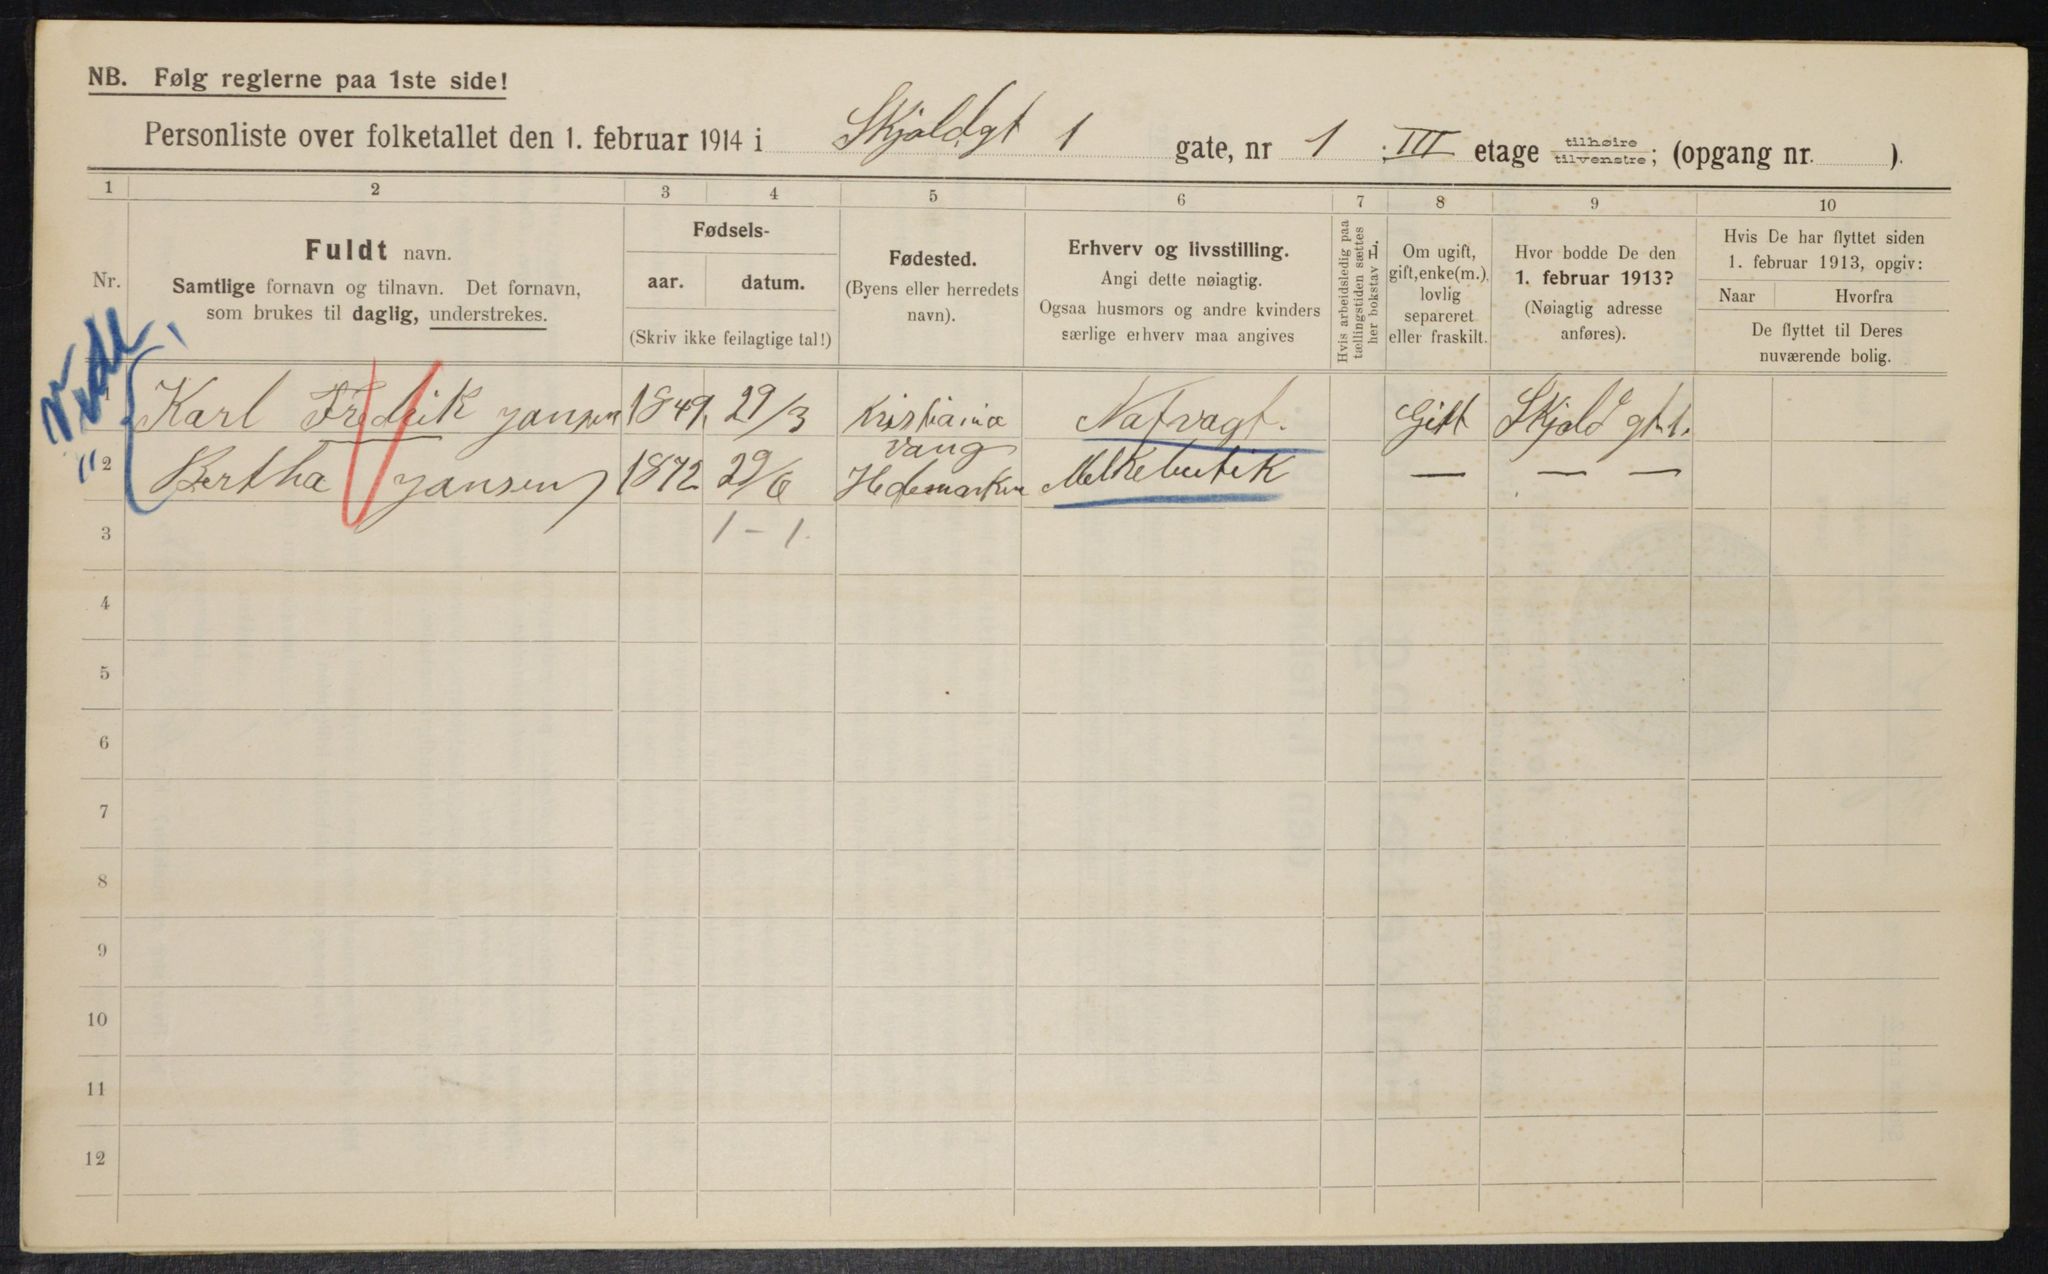 NB. Følg reglerne paa 1ste side!
Personliste over folketallet den 1. februar 1914 i Skjoldgt 1 gate, nr 1 III etage tilhøire tilvenstre; (opgang nr. ).
1 2 3 4 5 6 7 8 9 10
Nr.
Fuldt navn.
Samtlige fornavn og tilnavn. Det fornavn,
som brukes til daglig, understrekes.
Fødsels-
aar. datum.
(Skriv ikke feilagtige tal!)
Fødested.
(Byens eller herredets
navn).
Erhverv og livsstilling.
Angi dette nøiagtig.
Ogsaa husmors og andre kvinders
særlige erhverv maa angives
Hvis arbeidsledig paa
tællingstiden sættes
her bokstav L.
Om ugift,
gift, enke(m.),
lovlig
separeret
eller fraskilt.
Hvor bodde De den
1. februar 1913?
(Nøiagtig adresse
anføres).
Hvis De har flyttet siden
1. februar 1913, opgiv:
Naar Hvorfra
De flyttet til Deres
nuværende bolig.
1 Karl Fredrik Jansen 1849. 29/3 Kristiania Natvagt. Gift Skjold gt. 1.
2 Bertha Jansen 1872 29/6 Vang Hedemarken Melkebutik — — —
3 1 - 1.
4
5
6
7
8
9
10
11
12